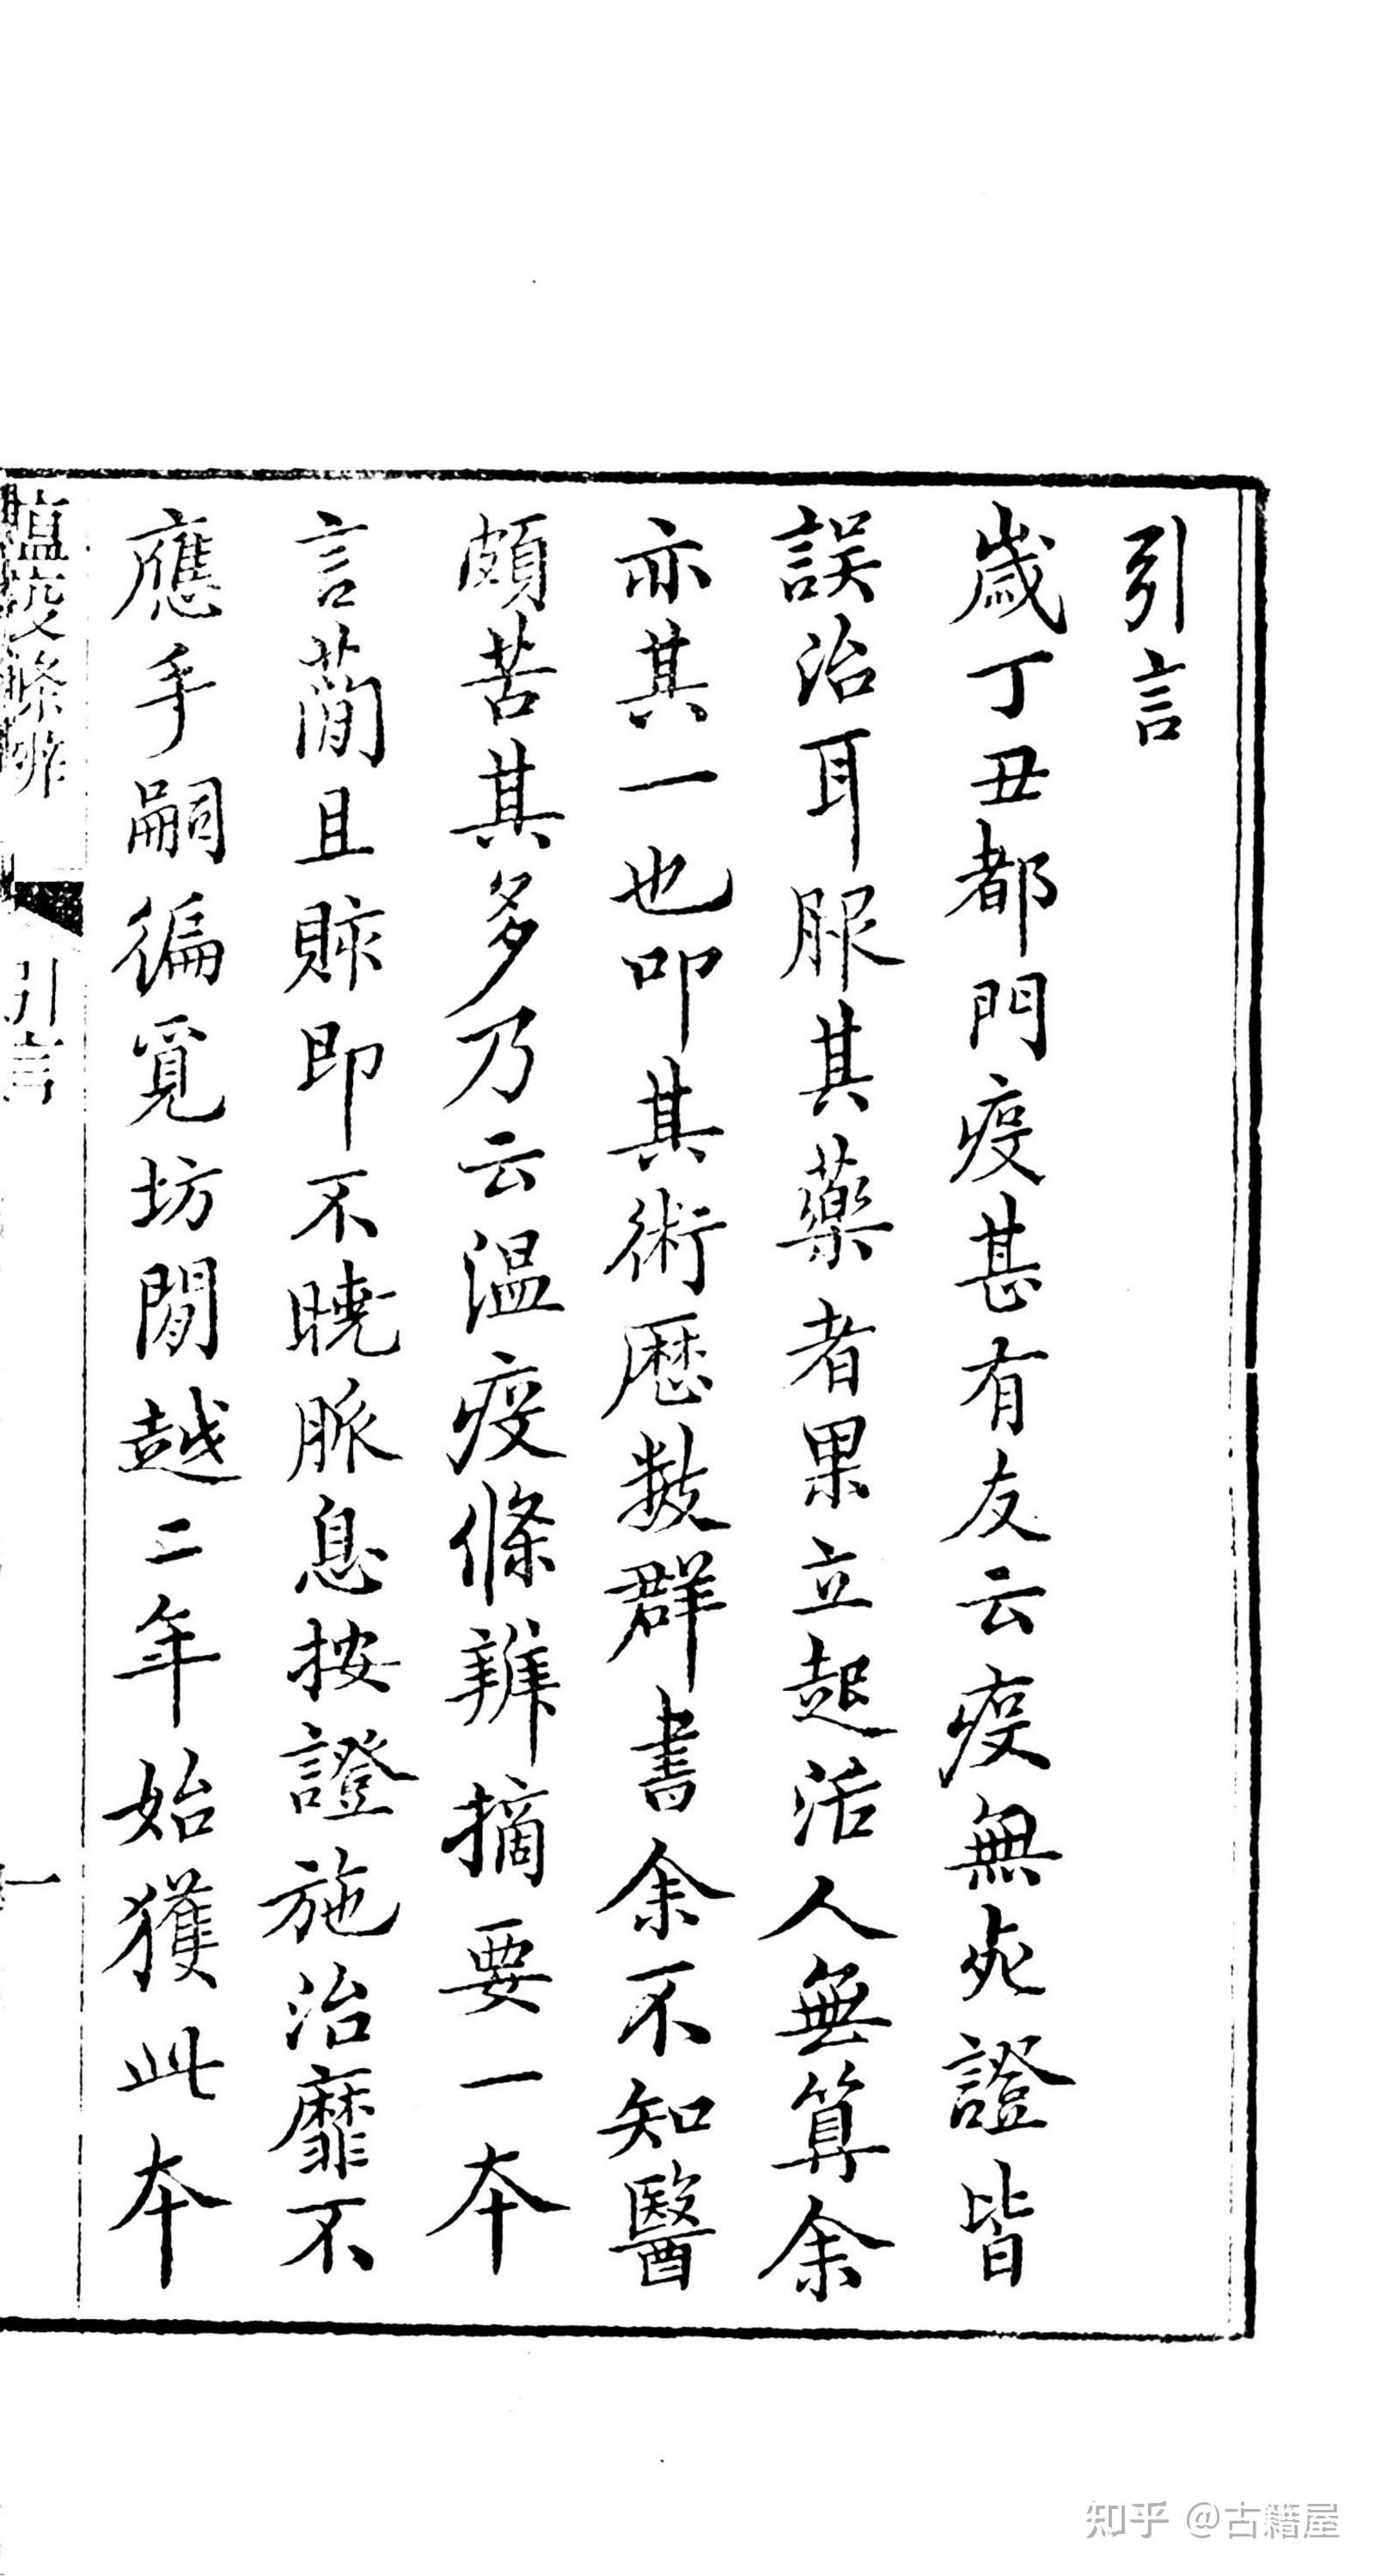 引言
歲丁丑都門疫甚有友云疫無死證皆
誤治耳服其藥者果立起活人無算余
亦其一也叩其術歷數群書余不知醫
頗苦其多乃云温疫條辨摘要一本
言簡且賅即不曉脈息按證施治靡不
應手嗣徧覓坊間越二年始獲此本
引言
一
知乎 @古籍屋